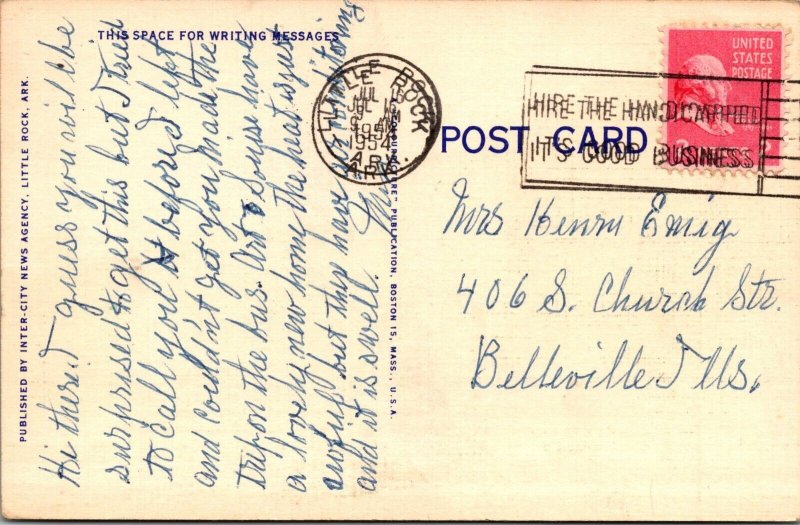 THIS SPACE FOR WRITING MESSAGES
Hi there. I guess you will be
surprised to get this but I tried
to call you before I left
and couldn't get you. Made the
trip on the bus. Art & Louise have
a lovely new home the heat is just
awful but they have air conditioning
and it is swell.
PUBLISHED BY INTER-CITY NEWS AGENCY, LITTLE ROCK, ARK.
PUBLICATION, BOSTON 15, MASS., U.S.A.
LITTLE ROCK
JUL 16
1954
ARK.
HIRE THE HANDICAPPED
IT'S GOOD BUSINESS
UNITED
STATES
POSTAGE
POST CARD
Mrs Henry Emig
406 S. Church Str.
Belleville Ills.